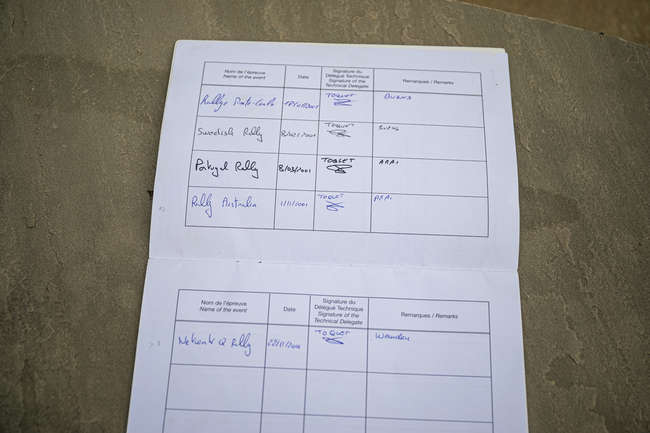 Nom de l'épreuve
Name of the event
Date
Signature du
Délégué Technique
Signature of the
Technical Delegate
Remarques / Remarks
Rallye Monte-Carlo
TOQUET
BURNS
Swedish Rally
TOQUET
Portugal Rally
8/03/2001
TOQUET
ARAI
Rally Australia
1/11/2001
TOQUET
ARAI
Nom de l'épreuve
Name of the event
Date
Signature du
Délégué Technique
Signature of the
Technical Delegate
Remarques / Remarks
Network Q Rally
TOQUET